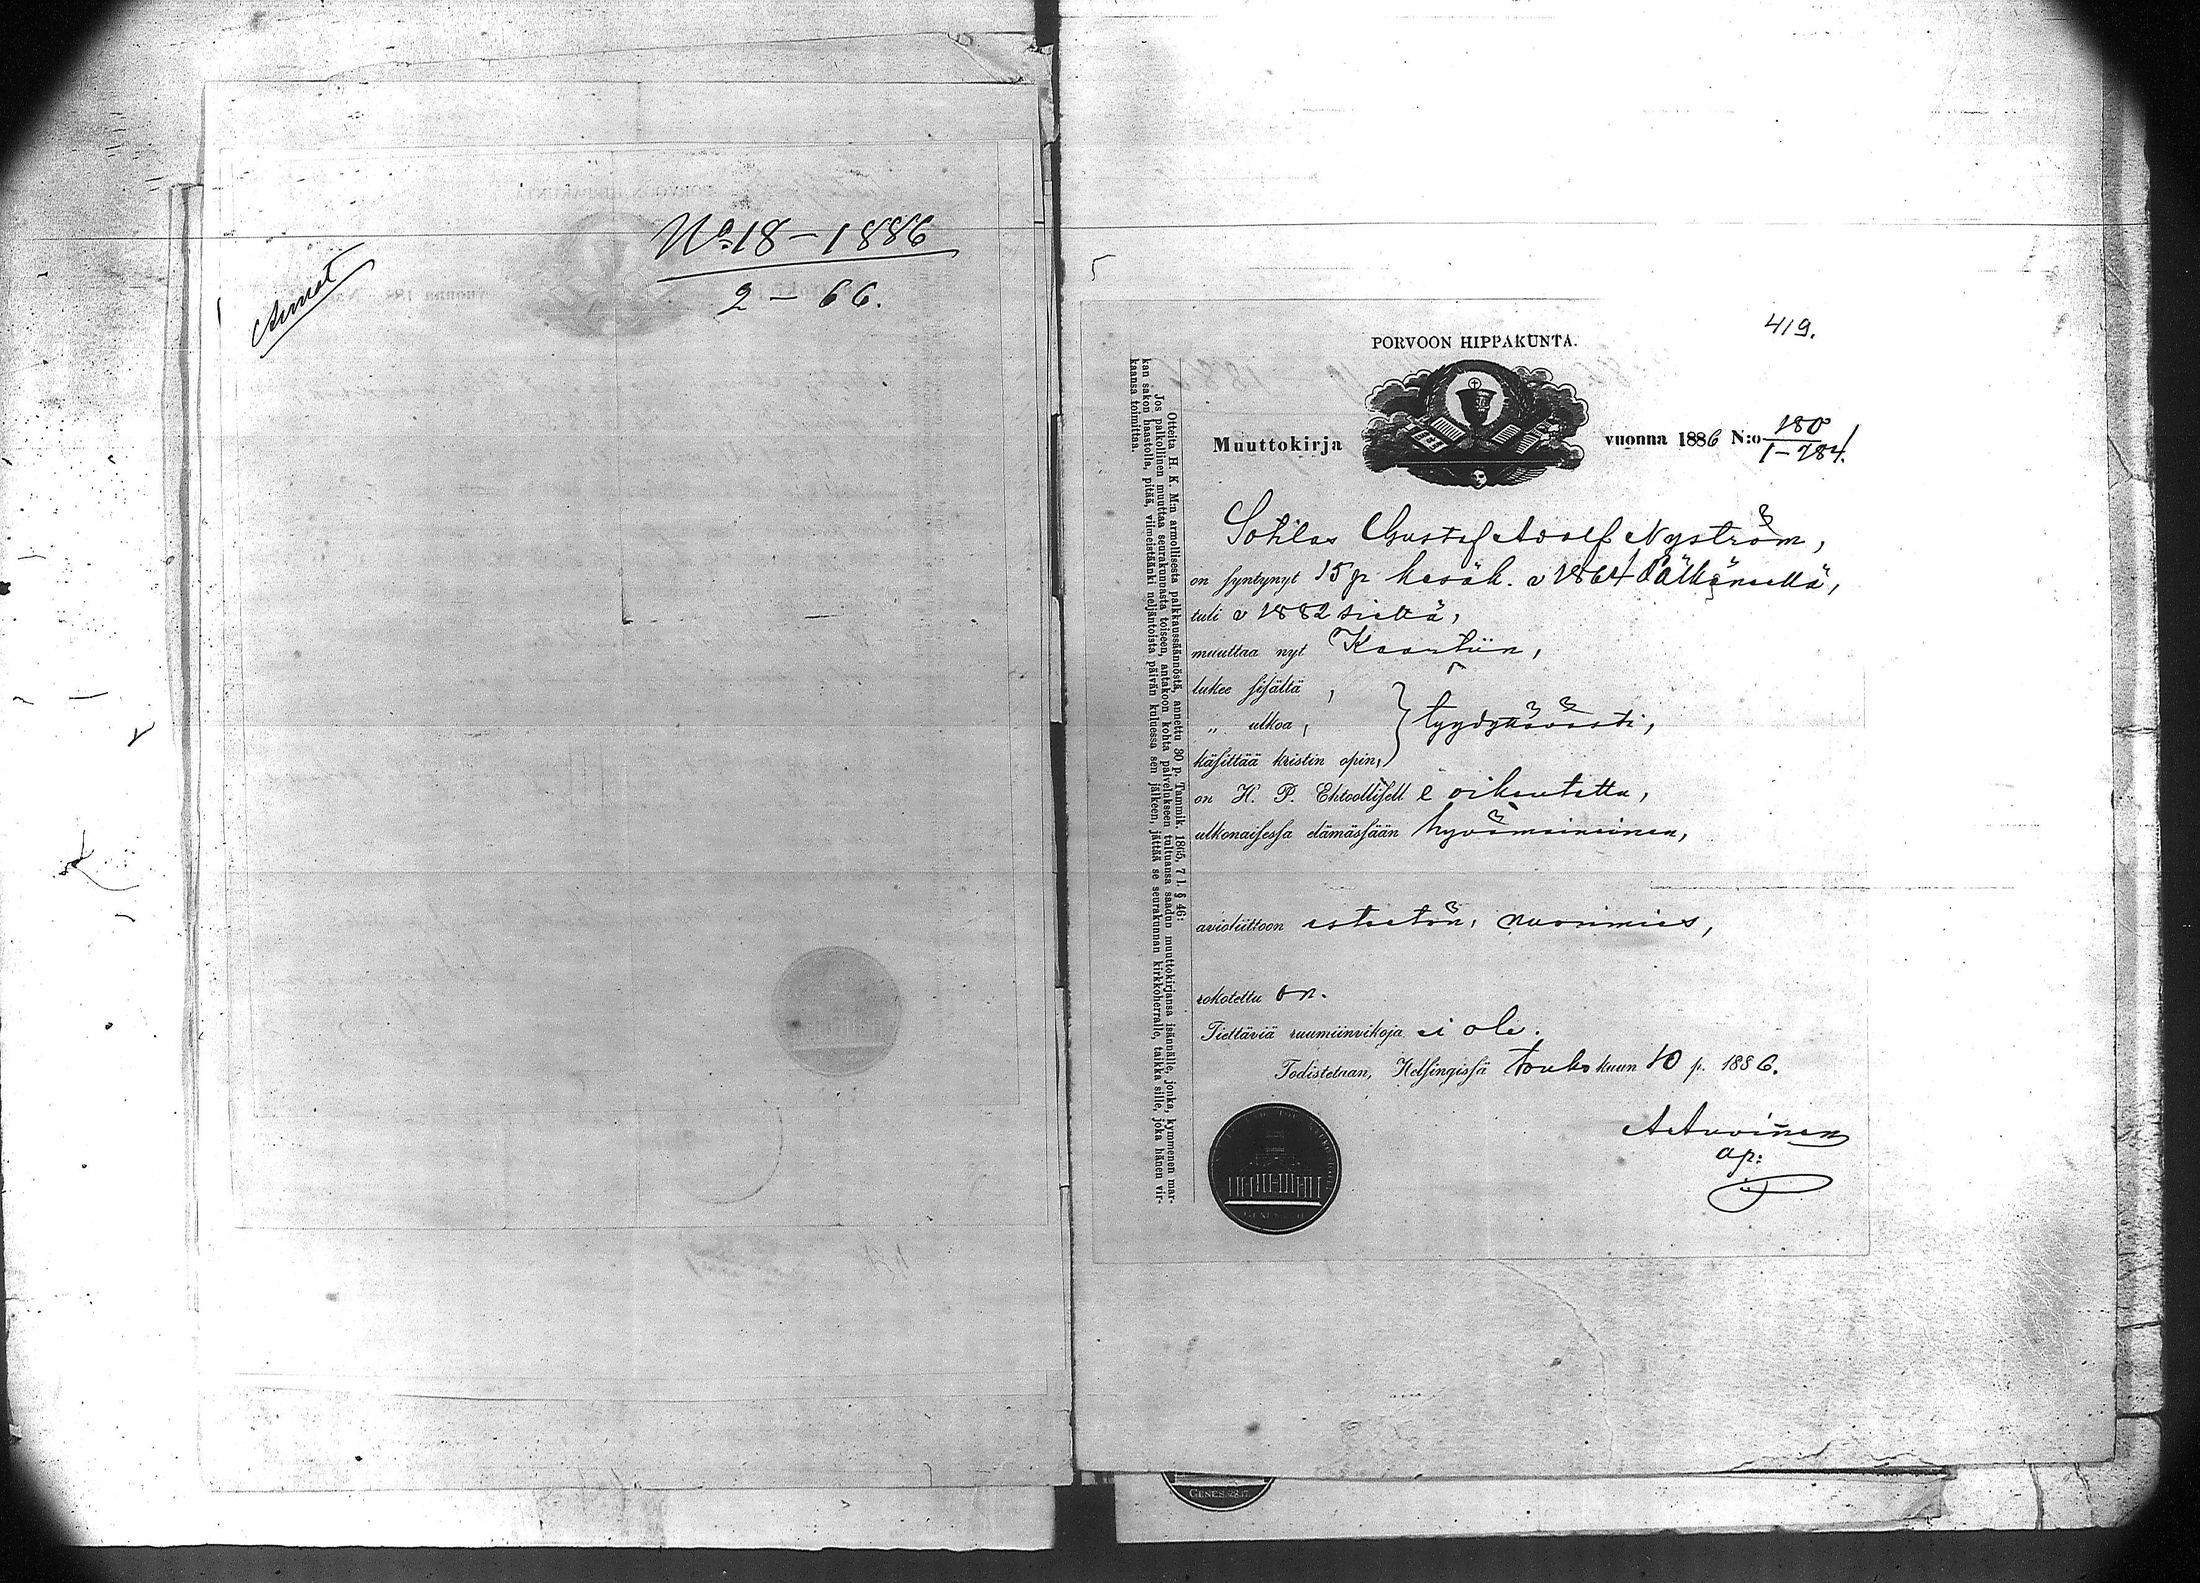 No: 18 – 1886
2 – 66.
419.
PORVOON HIPPAKUNTA.
Muuttokirja vuonna 1886 N:o 180
1–284.
Sotilas Gustaf Adolf Nyström,
on syntynyt 15 p. kesäk. v 1864 Pälkäneellä,
tuli v 1882 sieltä,
muuttaa nyt Kaartiin,
lukee sisältä,
„ ulkoa, tyydyttävästi,
käsittää kristin opin,
on H. P. Ehtoollisell e oikeutettu,
ulkonaisessa elämässään hyvämaineinen,
avioliittoon esteetön, nuorimies,
rokotettu on.
Tiettäviä ruumiinvikoja ei ole.
Todistetaan, Helsingissä toukokuun 10 p. 1886.
A Auvinen
ap:
Otteita H. K. M:n armollisesta palkkaussäännöstä, annettu 30 p. Tammik. 1865, 7 l. § 46:
Jos palkollinen muuttaa seurakunnasta toiseen, antakoon kohta palvelukseen tultuansa saadun muuttokirjansa isännälle, jonka, kymmenen mar-
kan sakon haastolla, pitää, viimeistäänki neljäntoista päivän kuluessa sen jälkeen, jättää se seurakunnan kirkkoherralle, taikka sille, joka hänen vir-
kaansa toimittaa.
GENES. 28.17.